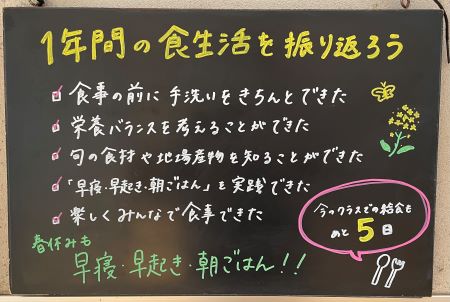 1年間の食生活を振り返ろう
食事の前に手洗いをきちんとできた
栄養バランスを考えることができた
旬の食材や地場産物を知ることができた
「早寝・早起き・朝ごはん」を実践できた
楽しくみんなで食事できた
今のクラスでの給食も
あと5日
春休みも
早寝・早起き・朝ごはん!!